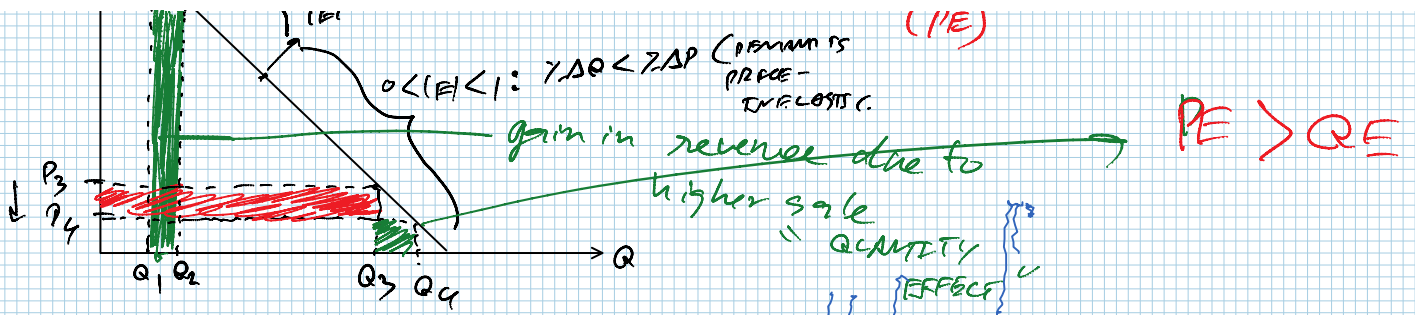 |E|
(PE)
0<|E|<1: %ΔQ < %ΔP (DEMAND IS
PRICE-
INELASTIC.
PE > QE
gain in revenue due to
higher sale
P3
P4
" QUANTITY
EFFECT
Q1 Q2 Q3 Q4 Q